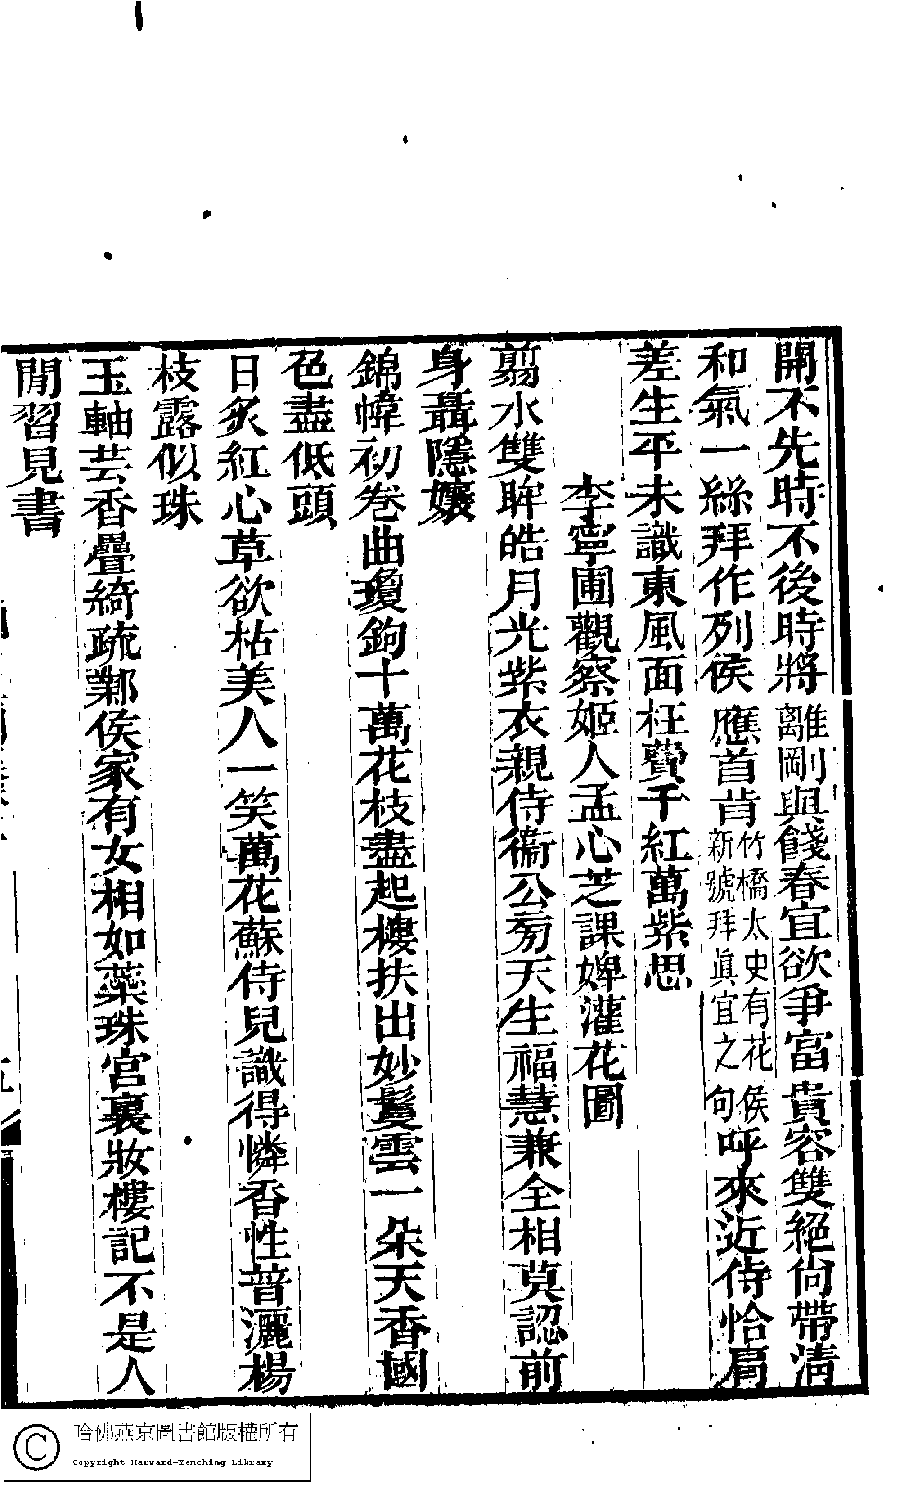 開不先時不後時將離剛與餞春宜欲爭富貴容雙絕尙帶淸
和氣一絲拜作列侯應首肯竹橋太史有花侯新號拜眞宜之句呼來近侍恰肩
差生平未識東風面枉費千紅萬紫思
李寧圃觀察姬人孟心芝課婢灌花圖
翦水雙眸皓月光紫衣親侍衞公旁天生福慧兼全相莫認前
身聶隱孃
錦幃初卷曲瓊鉤十萬花枝盡起樓扶出妙鬘雲一朵天香國
色盡低頭
日炙紅心草欲枯美人一笑萬花蘇侍兒識得憐香性普灑楊
枝露似珠
玉軸芸香疊綺疏鄴侯家有女相如蘂珠宮裏妝樓記不是人
閒習見書
哈佛燕京圖書館版權所有
Copyright Harvard-Yenching Library